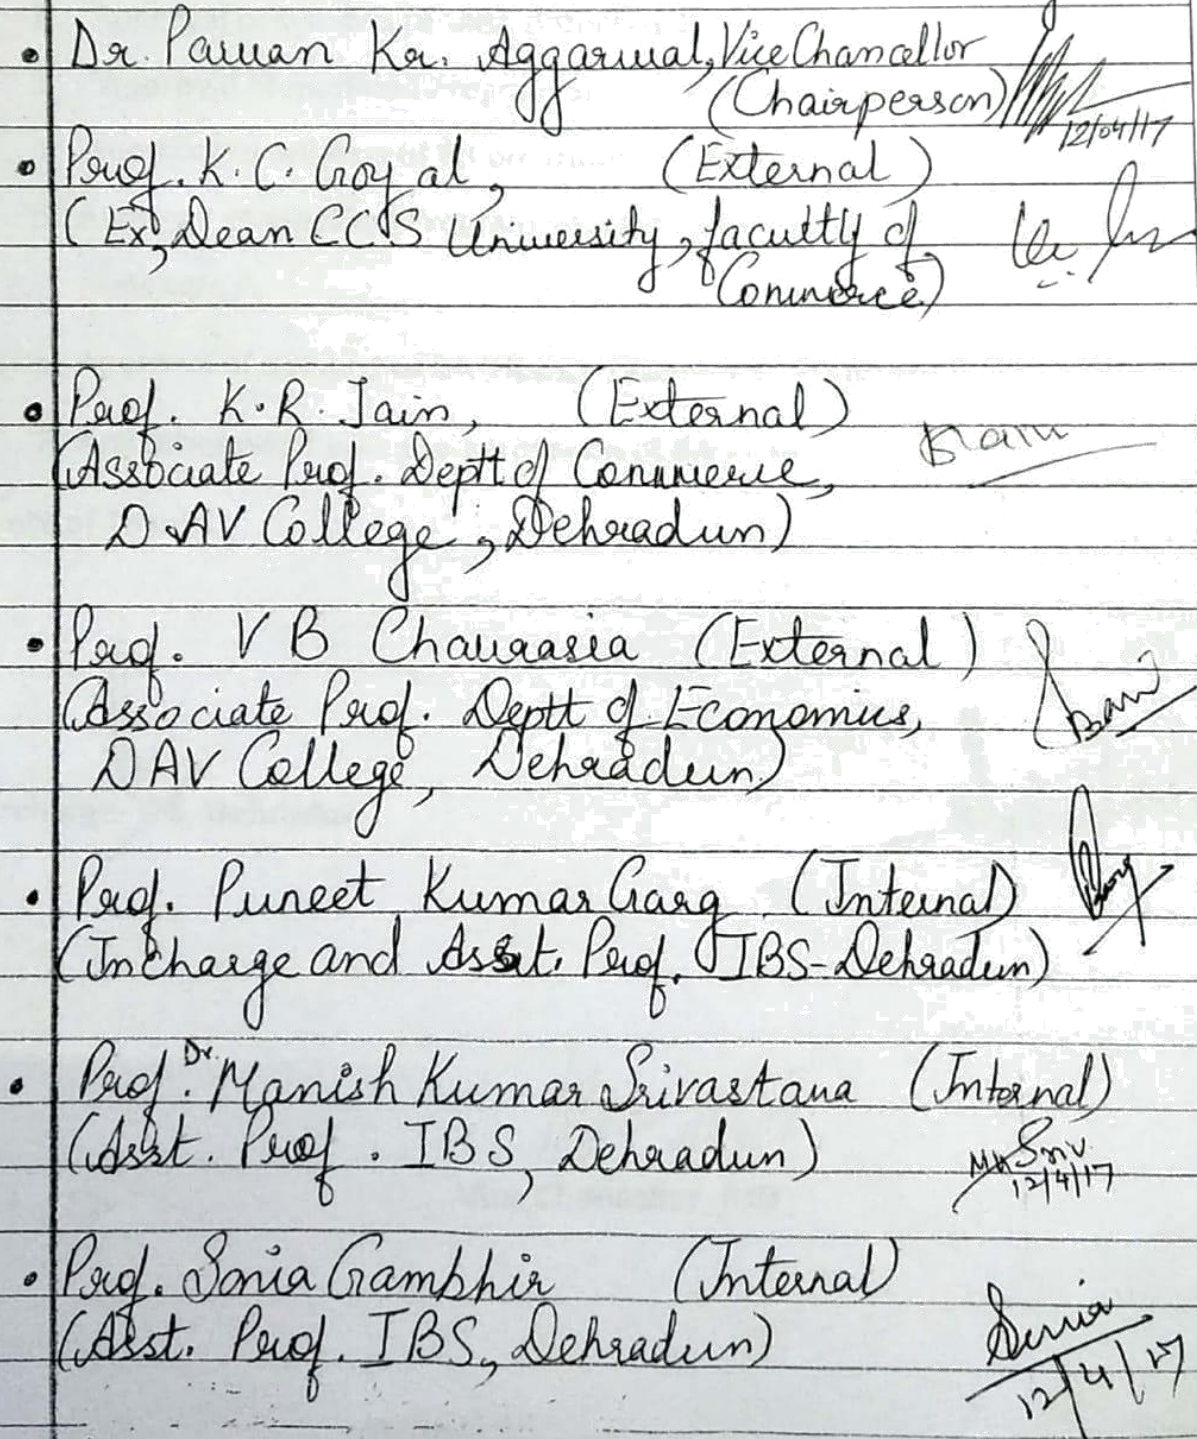 • Dr. Pawan Kr. Aggarwal, Vice Chancellor
(Chairperson)
12/04/17
• Prof. K. C. Goyal, (External)
(Ex, Dean CCS University, faculty of
Commerce)
• Prof. K. R. Jain, (External)
(Associate Prof. Deptt of Commerce,
DAV College, Dehradun)
• Prof. V B Chaurasia (External)
(Associate Prof. Deptt of Economics,
DAV College, Dehradun)
• Prof. Puneet Kumar Garg (Internal)
(Incharge and Asst. Prof. IBS-Dehradun)
• Prof. Dr. Manish Kumar Srivastava (Internal)
(Asst. Prof. IBS, Dehradun)
12/4/17
• Prof. Sonia Gambhir (Internal)
(Asst. Prof. IBS, Dehradun)
Sonia
12/4/17